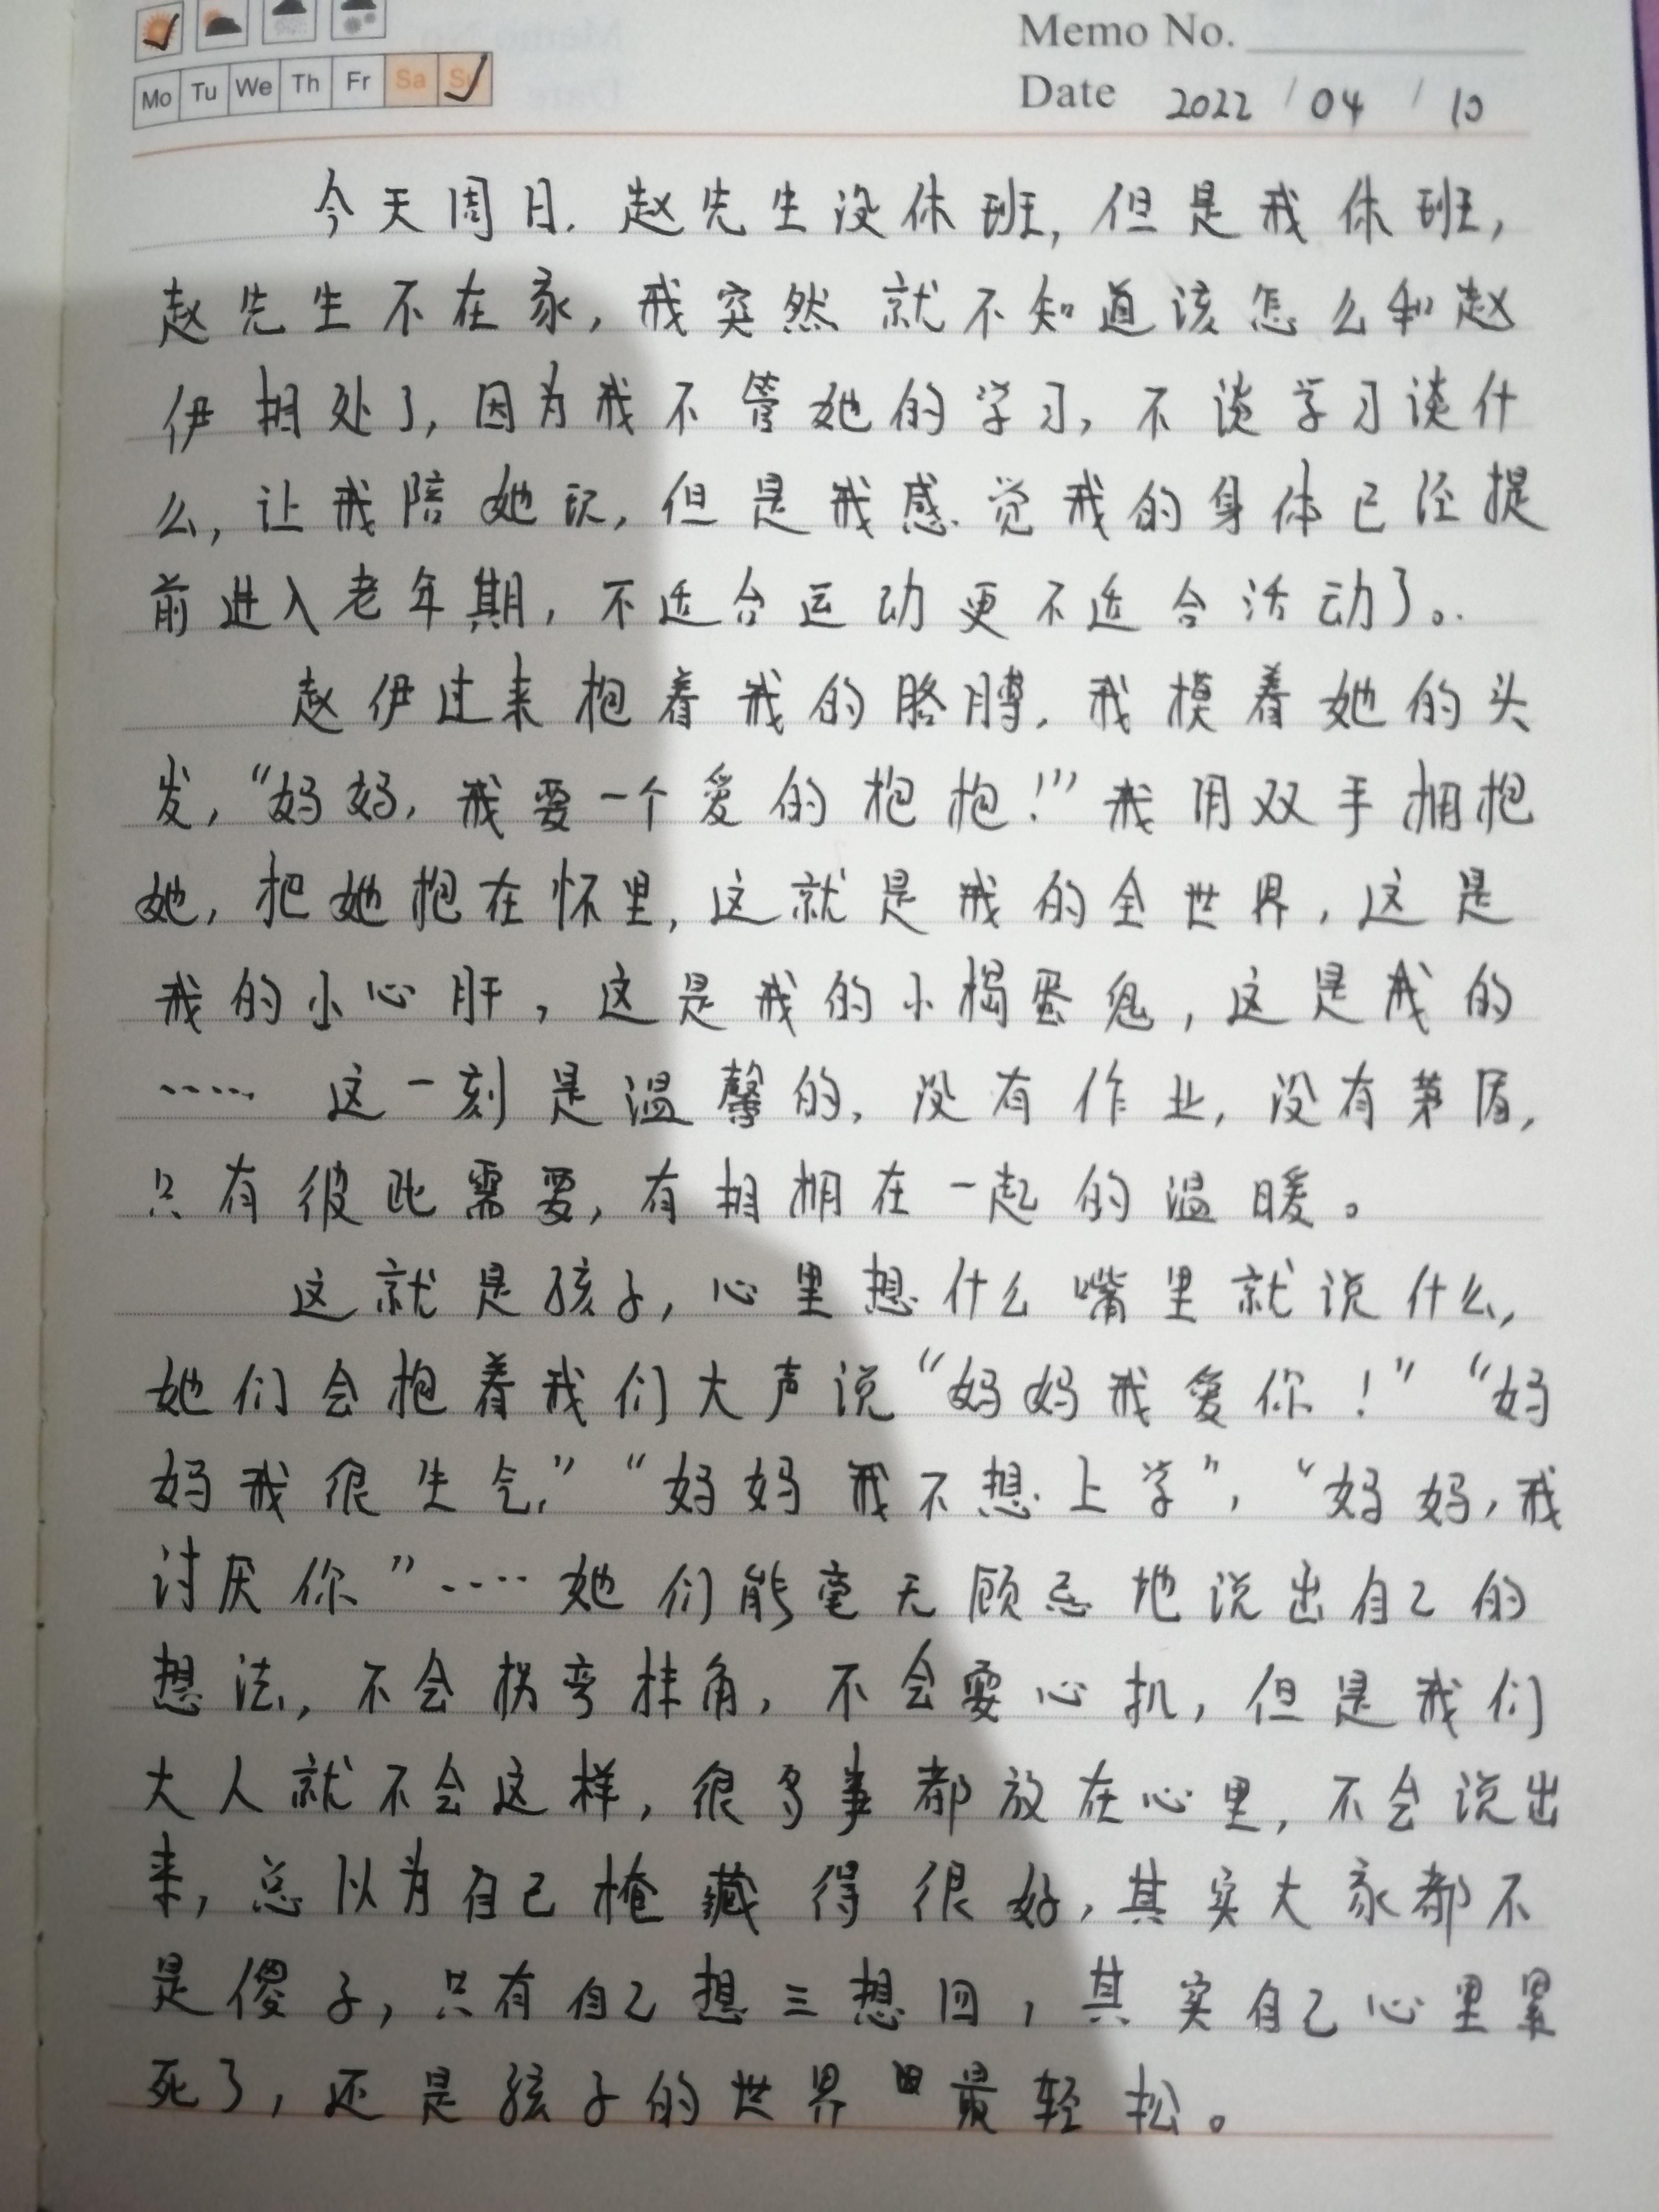 Memo No.
Mo Tu We Th Fr Sa Su
Date 2022 / 04 / 10
今天周日. 赵先生没休班, 但是我休班,
赵先生不在家, 我突然就不知道该怎么和赵
伊相处了, 因为我不管她的学习, 不谈学习谈什
么, 让我陪她玩, 但是我感觉我的身体已经提
前进入老年期, 不适合运动更不适合活动了。
赵伊过来抱着我的胳膊, 我摸着她的头
发, “妈妈, 我要一个爱的抱抱!” 我用双手拥抱
她, 把她抱在怀里, 这就是我的全世界, 这是
我的小心肝, 这是我的小捣蛋鬼, 这是我的
…… 这一刻是温馨的, 没有作业, 没有茅盾,
只有彼此需要, 有相拥在一起的温暖。
这就是孩子, 心里想什么嘴里就说什么,
她们会抱着我们大声说“妈妈我爱你!” “妈
妈我很生气,” “妈妈我不想上学”, “妈妈, 我
讨厌你”…… 她们能毫无顾忌地说出自己的
想法, 不会拐弯抹角, 不会耍心机, 但是我们
大人就不会这样, 很多事都放在心里, 不会说出
来, 总以为自己掩藏得很好, 其实大家都不
是傻子, 只有自己想三想四, 其实自己心里累
死了, 还是孩子的世界最轻松。